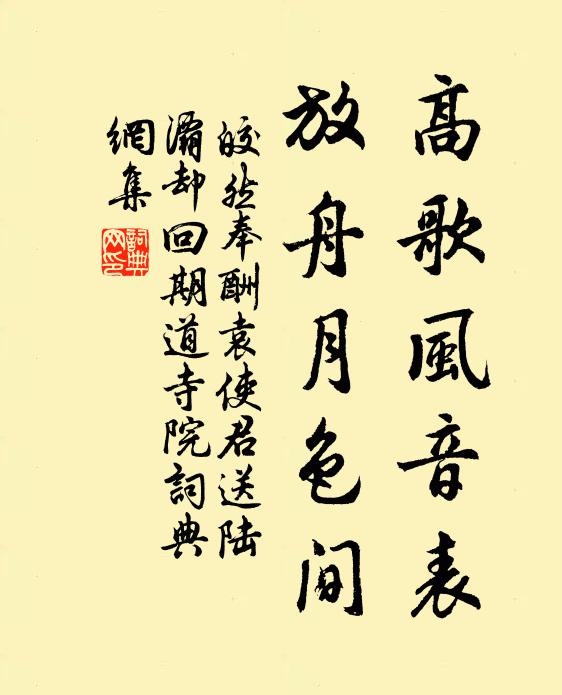 高歌風音表
放舟月色間
皎然奉酬袁使君送陸
灞却回期道寺院詞典
網集
詞典網印